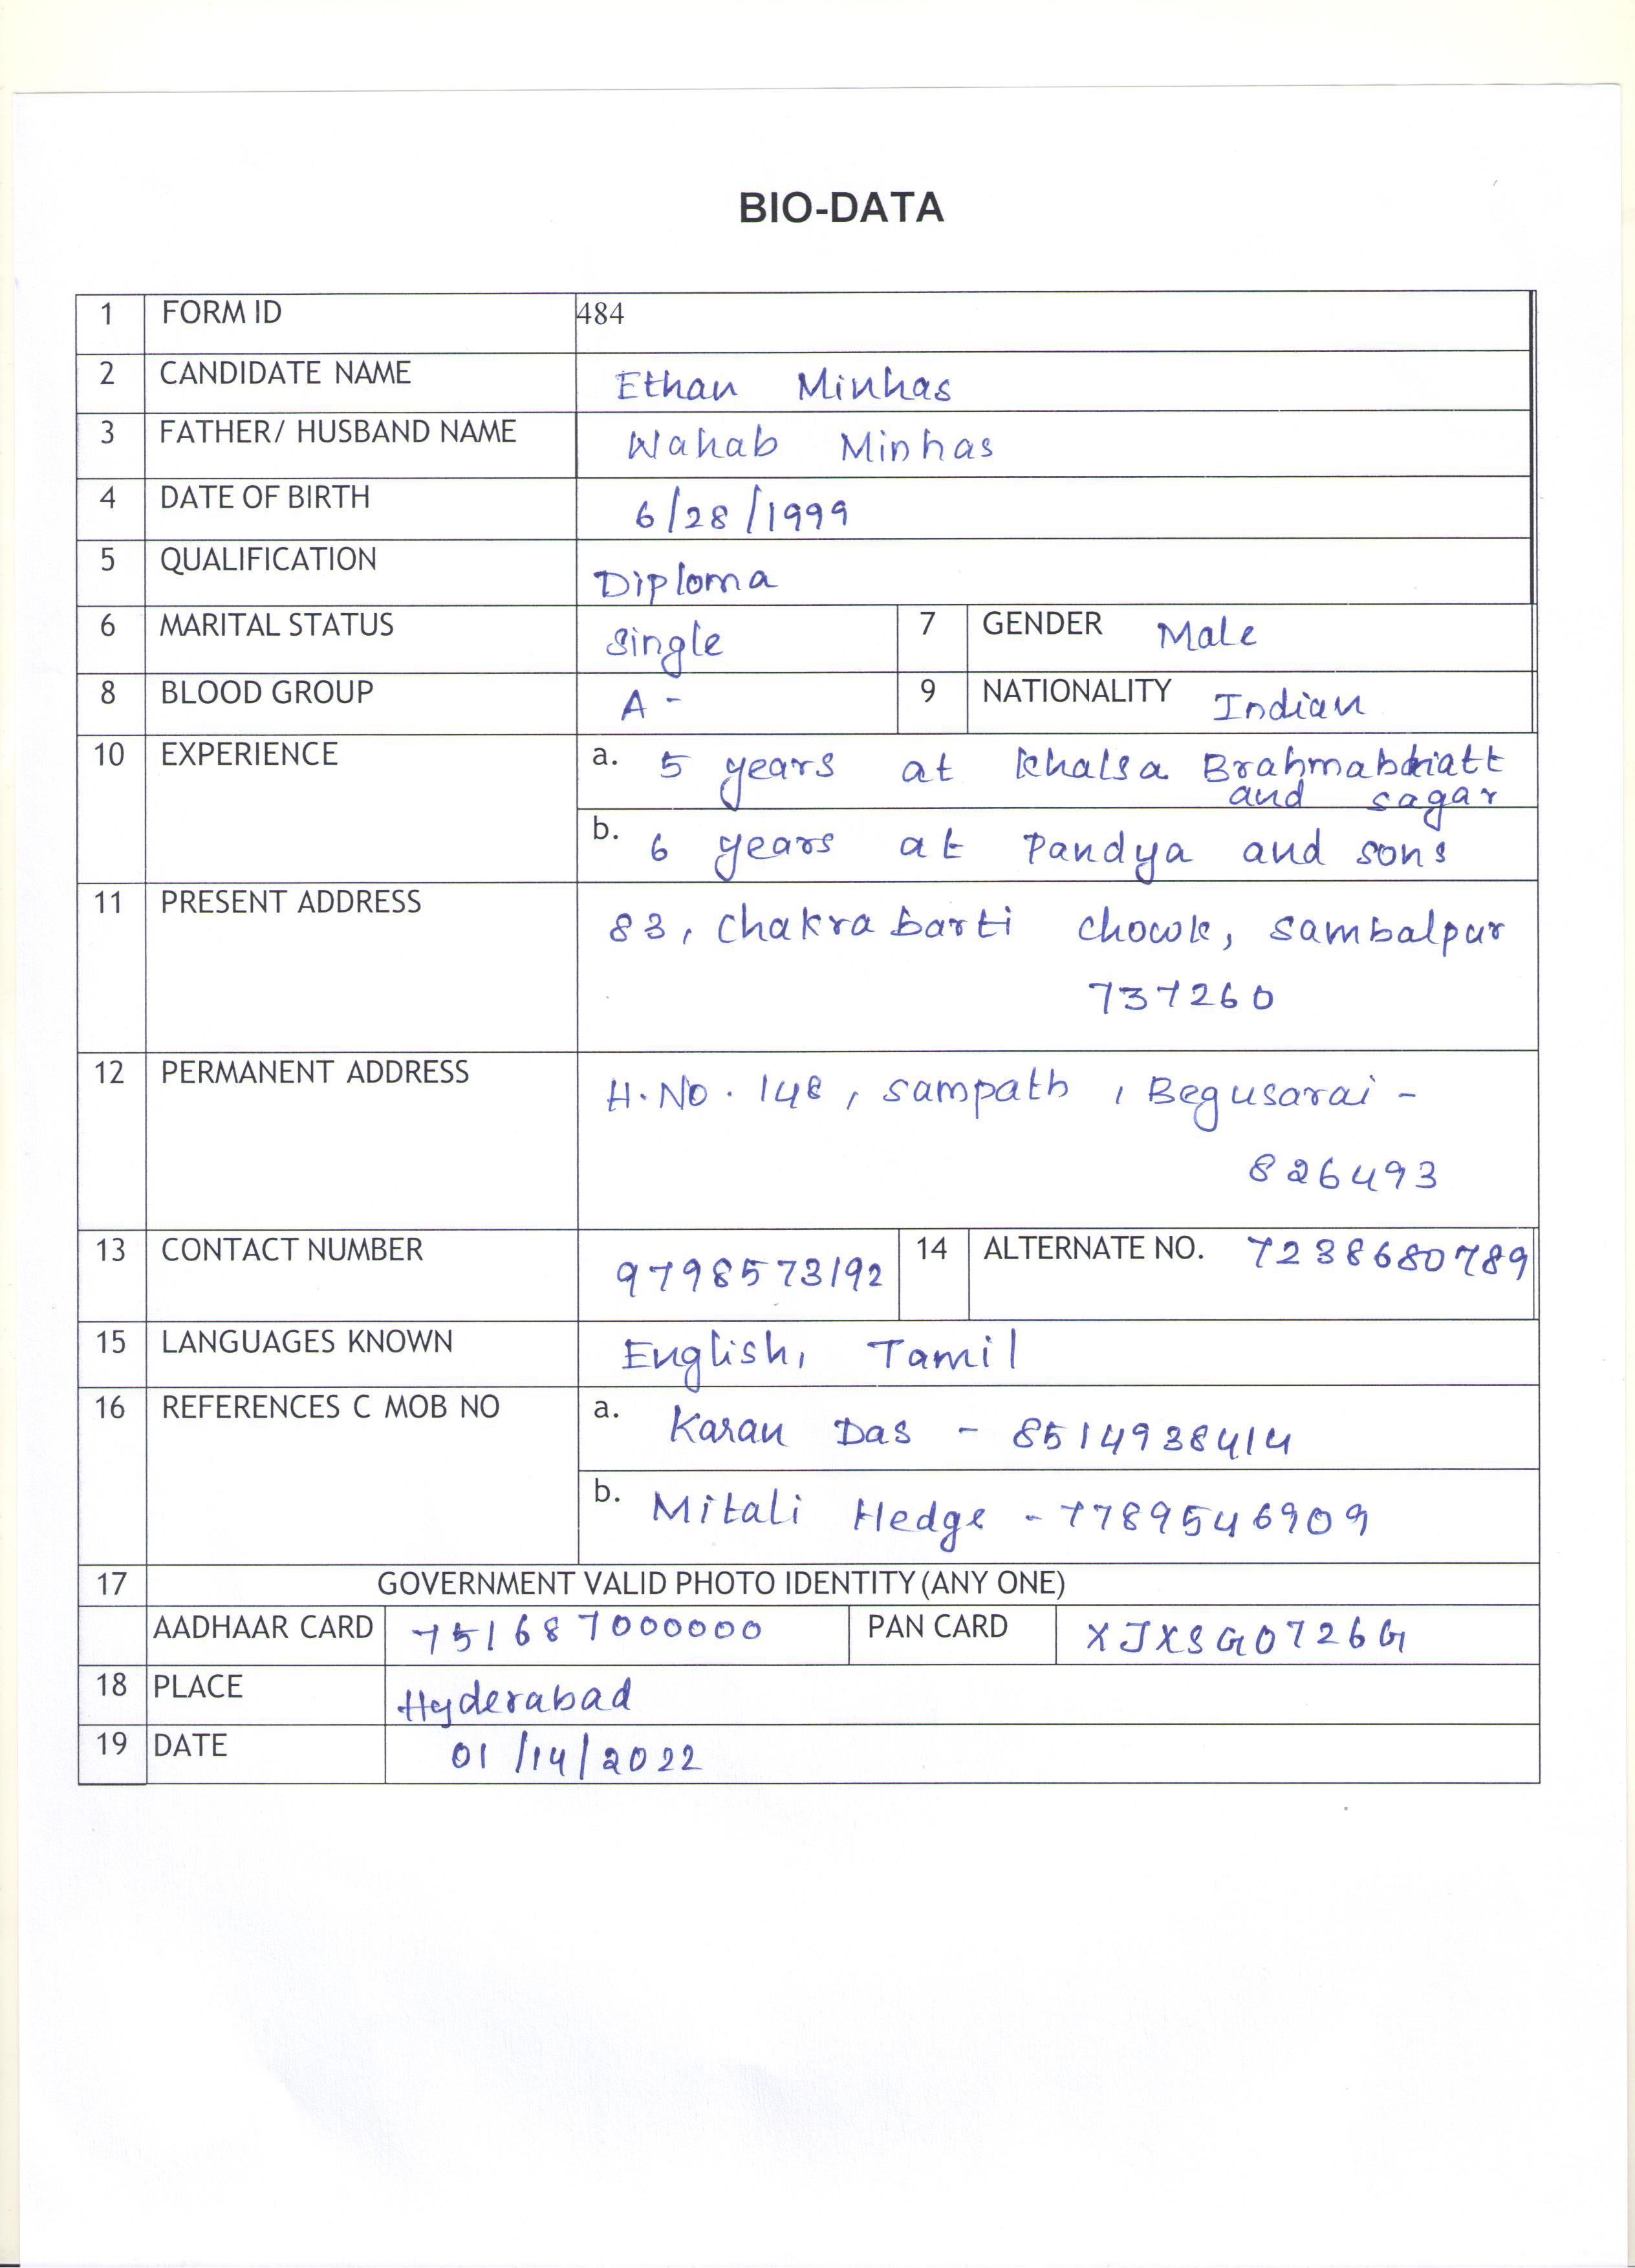 BIO-DATA
1 FORM ID 484
2 CANDIDATE NAME Ethan Minhas
3 FATHER/ HUSBAND NAME Wahab Minhas
4 DATE OF BIRTH 6/28/1999
5 QUALIFICATION Diploma
6 MARITAL STATUS Single 7 GENDER Male
8 BLOOD GROUP A - 9 NATIONALITY Indian
10 EXPERIENCE a. 5 years at Khalsa Brahmabhatt
and sagar
b. 6 years at Pandya and sons
11 PRESENT ADDRESS 83, Chakrabarti chowk, Sambalpur
737260
12 PERMANENT ADDRESS H.No. 148, Sampath, Begusarai -
826493
13 CONTACT NUMBER 9798573192 14 ALTERNATE NO. 7238680789
15 LANGUAGES KNOWN English, Tamil
16 REFERENCES C MOB NO a. Karan Das - 8514938414
b. Mitali Hedge - 7789546909
17 GOVERNMENT VALID PHOTO IDENTITY(ANY ONE)
AADHAAR CARD 751687000000 PAN CARD XJXSG0726G
18 PLACE Hyderabad
19 DATE 01/14/2022